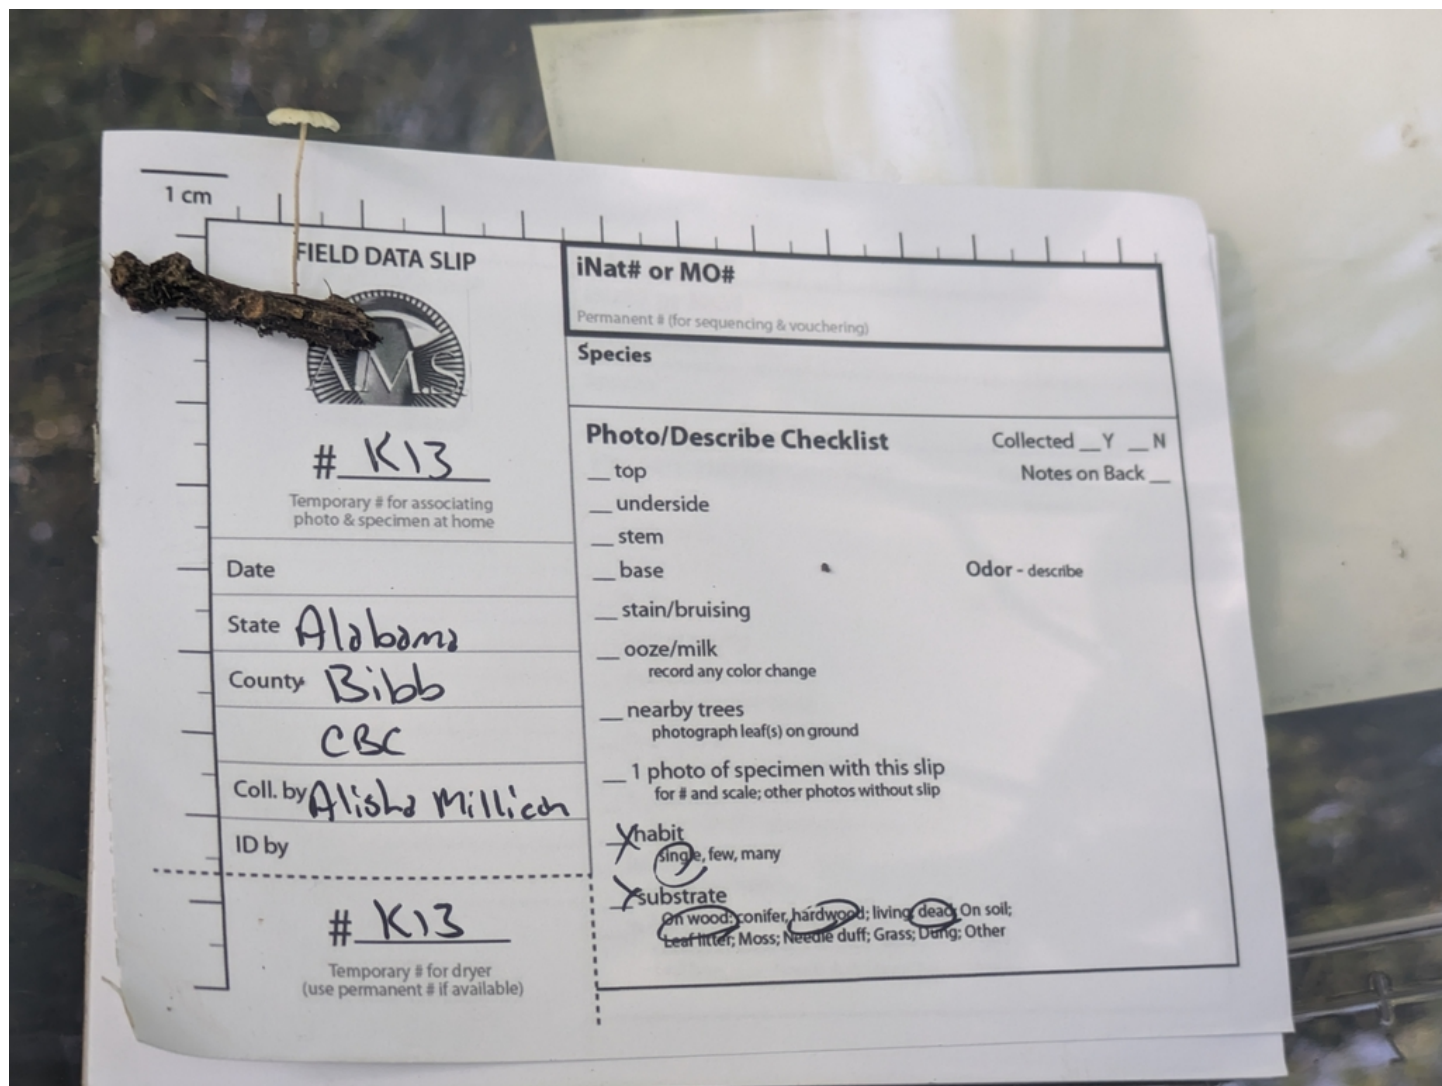 1 cm
FIELD DATA SLIP
A.M.S.
# K13
Temporary # for associating
photo & specimen at home
Date
State Alabama
County Bibb
CBC
Coll. by Alisha Millican
ID by
# K13
Temporary # for dryer
(use permanent # if available)
iNat# or MO#
Permanent # (for sequencing & vouchering)
Species
Photo/Describe Checklist
Collected __Y __N
Notes on Back __
__ top
__ underside
__ stem
__ base
Odor - describe
__ stain/bruising
__ ooze/milk
record any color change
__ nearby trees
photograph leaf(s) on ground
__ 1 photo of specimen with this slip
for # and scale; other photos without slip
X habit
single, few, many
X substrate
On wood: conifer, hardwood; living, dead; On soil;
Leaf litter; Moss; Needle duff; Grass; Dung; Other